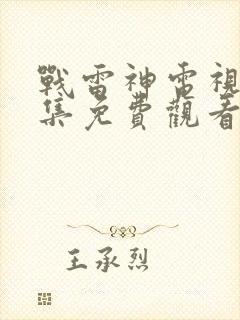 戰雷神電視
集免費觀看
王承烈